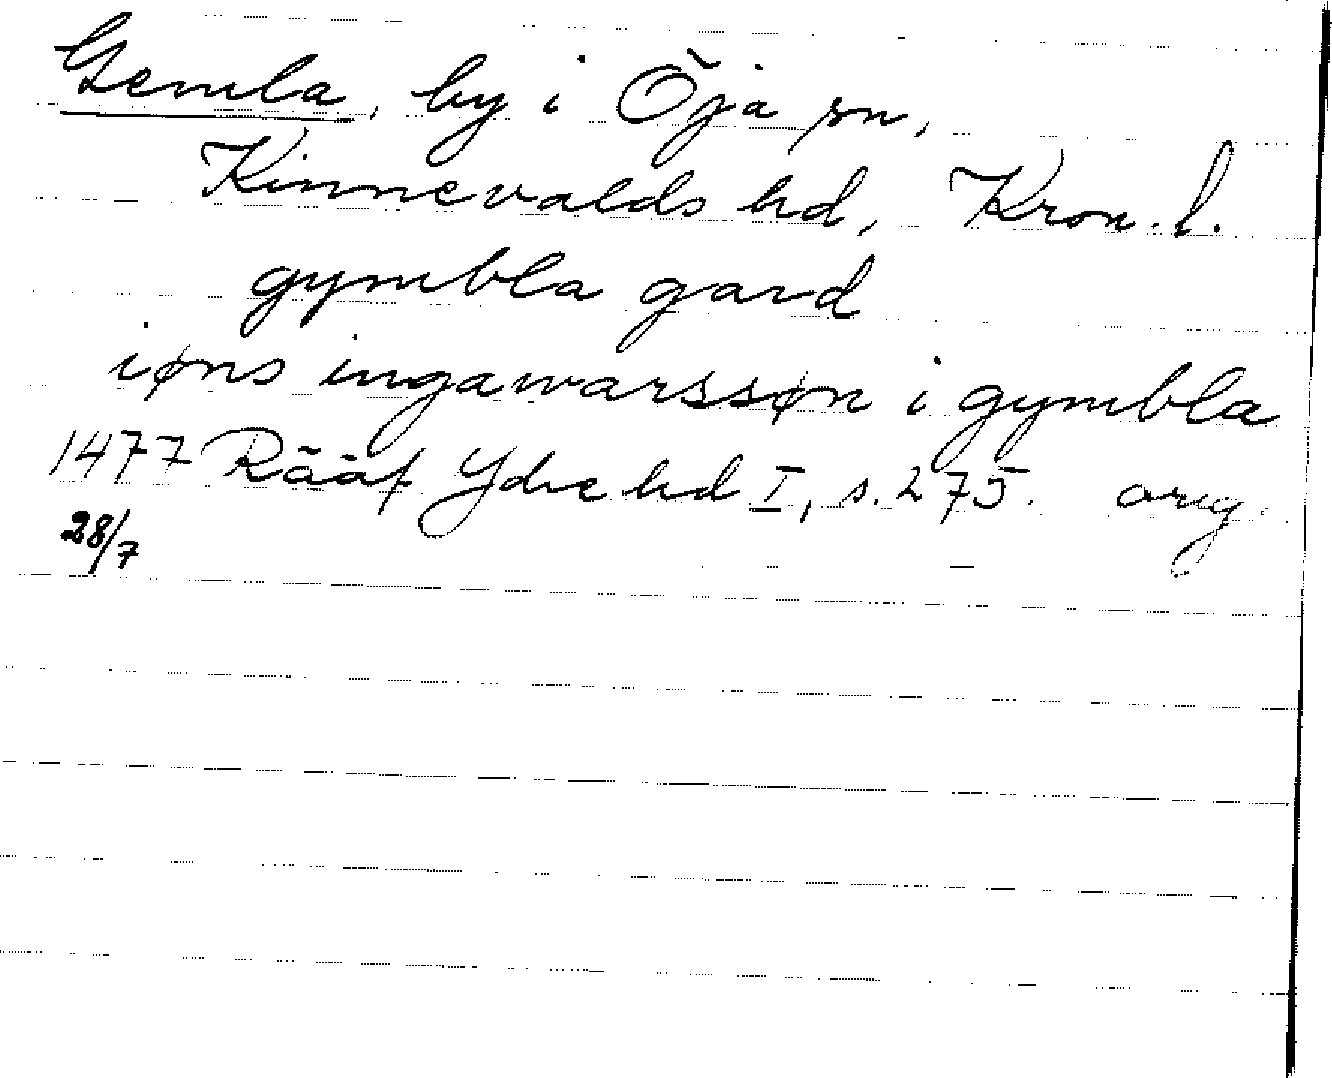 Gemla, by i Öja sn,
Kinnevalds hd, Kron. l.
gymbla gard
iøns ingawarssøn i gymbla
1477 Rääf Ydre hd I, s. 275. orig.
28/7